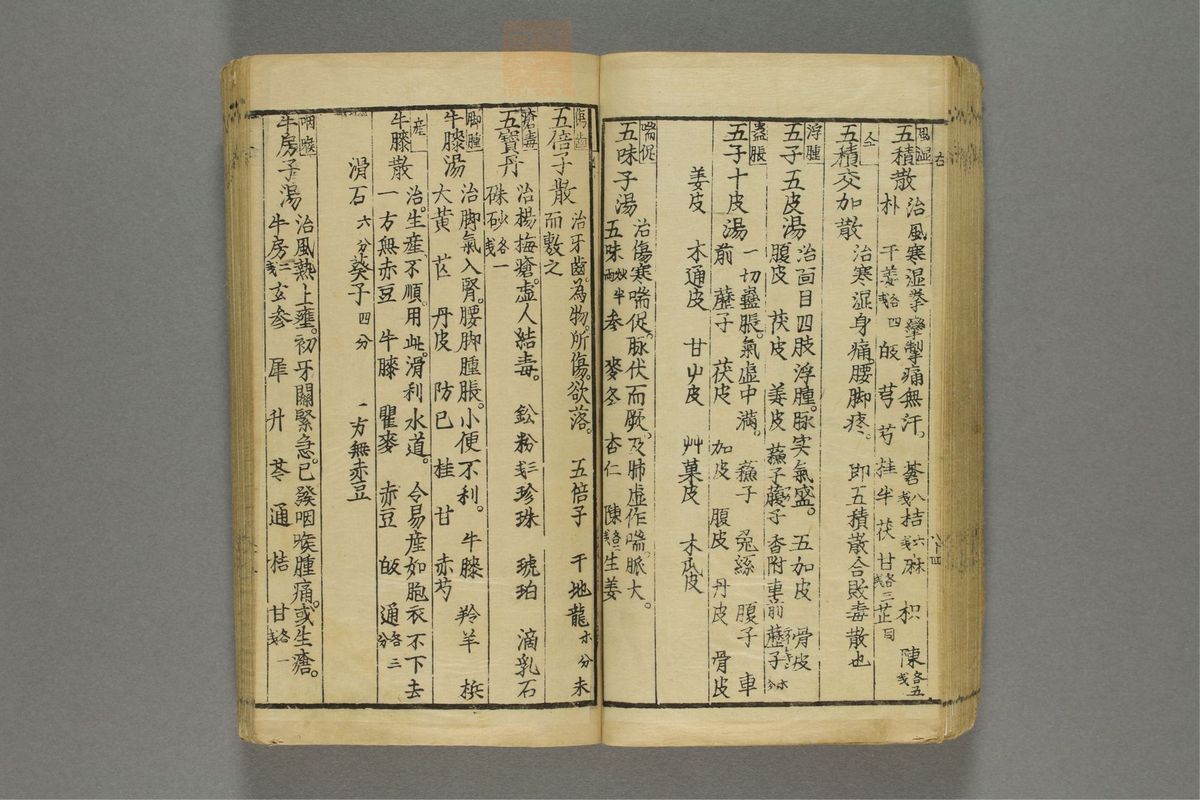 右
風湿
五積散 治風寒湿拳攣掣痛無汗、蒼八戔桔六戔麻 枳 陳各五戔
朴 干姜各四戔 皈 芎 芍 桂 半 茯 甘各三戔 芷同
仝
五積交加散 治寒湿身痛。腰脚疼。 即五積散合敗毒散也
浮腫
五子五皮湯 治面目四肢浮腫。脉実氣盛。 五加皮 骨皮
腹皮 茯皮 姜皮 蘓子 香附 車前
蠱脹
五子十皮湯 一切蠱脹。氣虚中滿。 蘓子 兔絲 腹子 車
前 子 茯皮 加皮 腹皮 丹皮 骨皮
姜皮 木通皮 甘 皮 艸菓皮 木瓜皮
喘促
五味子湯 治傷寒喘促。脉伏而厥。及肺虚作喘。脈大。
五味 半 参 麥冬 杏仁 陳各二戔 生姜
傷齒
五倍子散 治牙齒。為物。所傷。欲落。 五倍子 干地龍 未
而敷之
瘡毒
五寳丹 治楊梅瘡。虚人結毒。 鈆粉三戔 珍珠 琥珀 滴乳石
硃砂各一戔
脚腫
牛膝湯 治脚氣入腎。腰脚腫脹。小便不利。 牛膝 羚羊 梹
大黄 芑 丹皮 防已 桂 甘 赤芍
産
牛膝散 治。生産、不順。用此。滑利水道。 令易産如胞衣不下去
一方無赤豆 牛膝 瞿麥 赤豆 皈 通各三分
滑石六分 葵子四分 一方無赤豆
咽喉
牛房子湯 治風熱上壅。初牙關緊急。已發咽喉腫痛。或生瘡。
牛房三戔 玄参 犀 升 芩 通 桔 甘各一戔